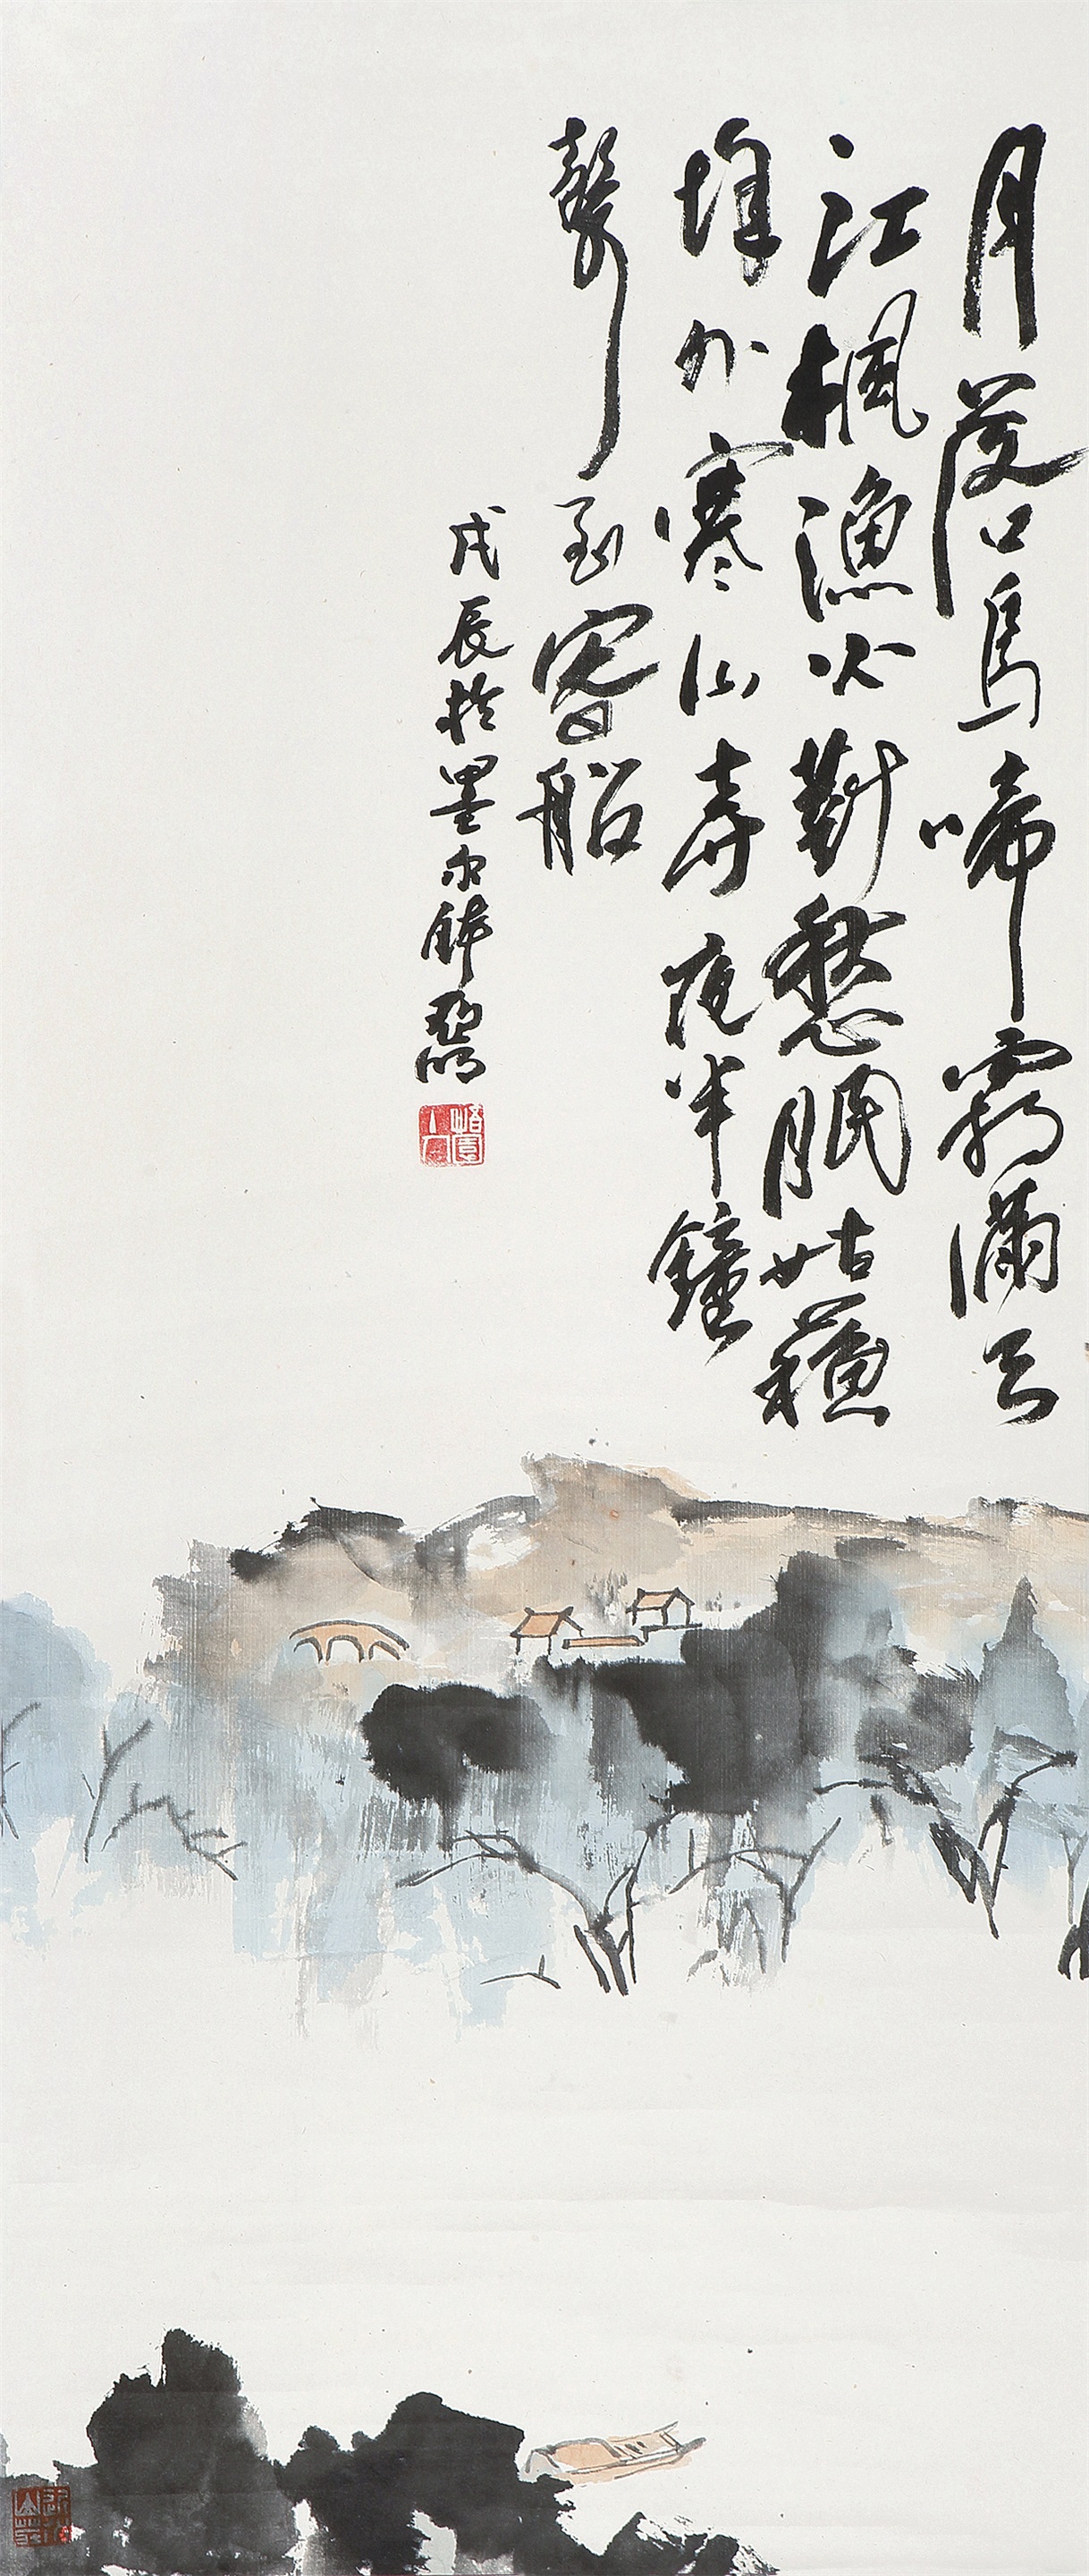 月落烏啼霜滿天
江楓漁火對愁眠姑蘓
城外寒山寺夜半鐘
聲到客船
戊辰於墨尔鉢亞明